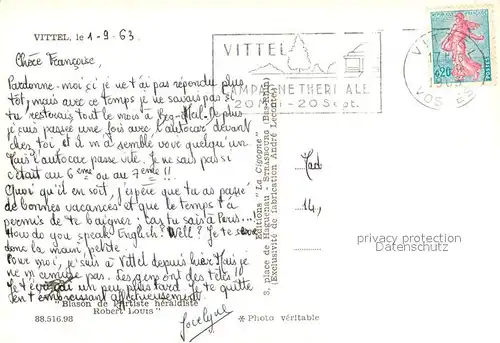 VITTEL, le 1-9-63
Chère Françoise,
Pardonne-moi si je ne t'ai pas répondu plus
tôt, mais avec ce temps je ne savais pas si
tu resterais tout le mois à Beg-Meil. De plus
je suis passée une fois avec l'autocar devant
chez toi et il m'a semblé voir quelqu'un.
Mais l'autocar passe vite. Je ne sais pas si
c'était au 6ème ou au 7ème !!
Quoi qu'il en soit, j'espère que tu as passé
de bonnes vacances et que le temps t'a
permis de te baigner; car tu sais à Paris...
How do you speak English? Well? Je te serre
dans la main, petite.
Pour moi, je suis à Vittel depuis hier. Mais je
ne m'amuse pas. Les gens ont des têtes !!
Je t'écrirai un peu plus tard. Je te quitte
en t'embrassant affectueusement.
Jocelyne
"Blason de l'Artiste héraldiste
Robert Louis"
88.516.98
* Photo véritable
Editions "La Cigogne"
3, place de Haguenau - STRASBOURG (Bas-Rhin)
(Exclusivité de fabrication André Leconte)
VITTEL
CAMPAGNE THERMALE
20 Mai - 20 Sept.
VITTEL
VOSGES
0,20
Mad
14,
privacy protection
Datenschutz